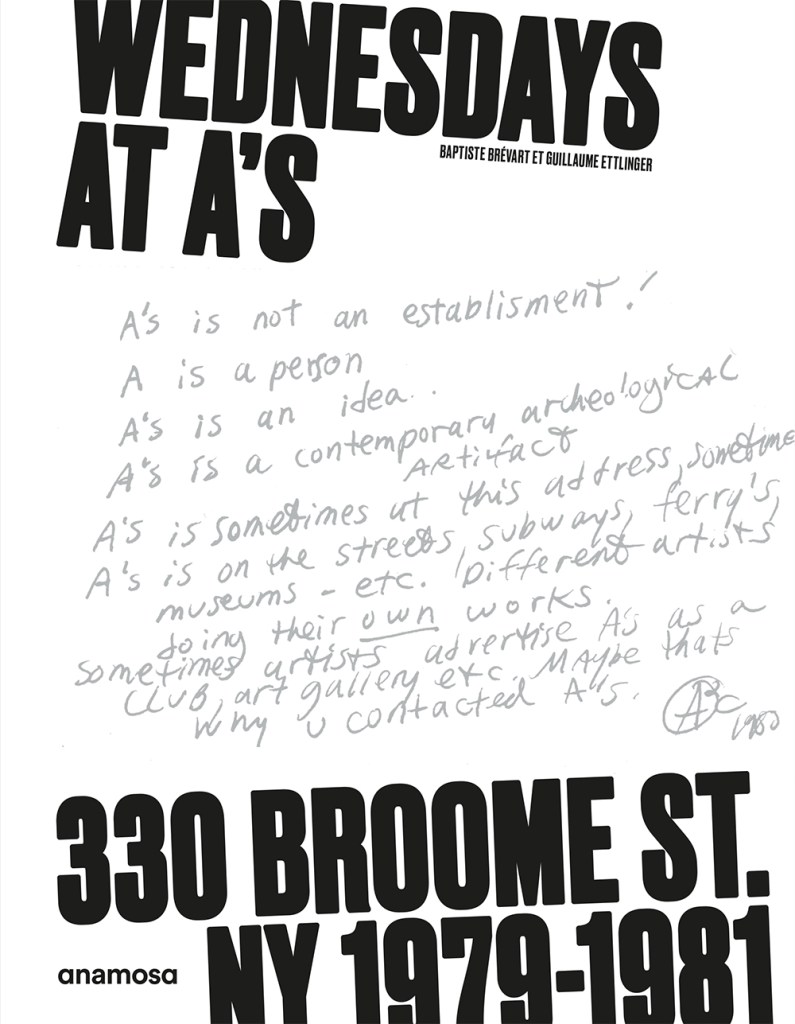 WEDNESDAYS
AT A'S
BAPTISTE BRÉVART ET GUILLAUME ETTLINGER
A's is not an establisment!
A is a person
A's is an idea..
A's is a contemporary archeologicAL
ARtifact
A's is sometimes at this address, sometime
A's is on the streets, subways, ferry's,
museums - etc. Different artists
doing their own works.
Sometimes artists advertise A's as a
CLUB, art gallery etc. MAybe thats
Why u contacted A's.
ABC
1980
330 BROOME ST.
NY 1979-1981
anamosa